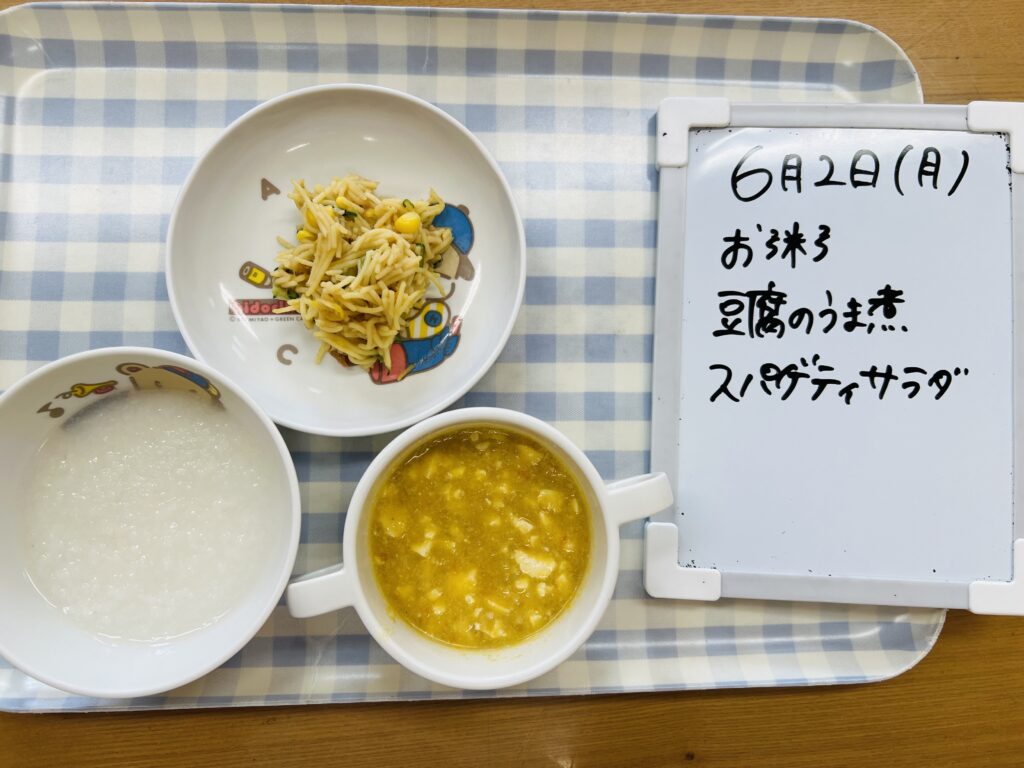 6月2日(月)
お粥
豆腐のうま煮
スパゲティサラダ
A
C